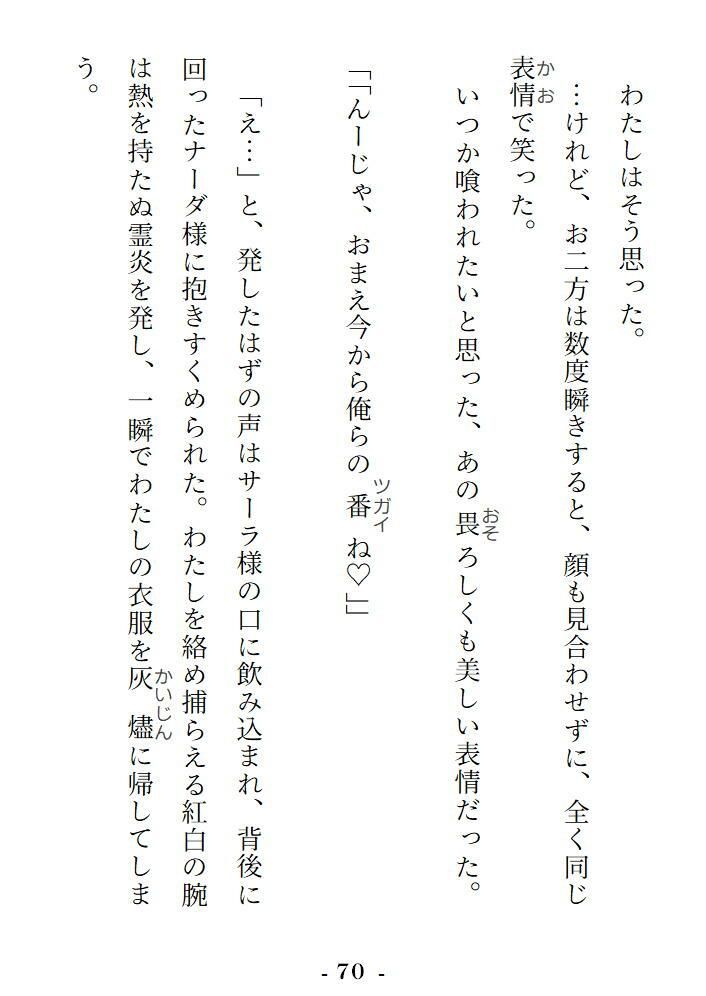 わたしはそう思った。
…けれど、お二方は数度瞬きすると、顔も見合わせずに、全く同じ
表情で笑った。
かお
いつか喰われたいと思った、あの畏ろしくも美しい表情だった。
おそ
「「んーじゃ、おまえ今から俺らの番ね♡」」
ツガイ
「え…」と、発したはずの声はサーラ様の口に飲み込まれ、背後に
回ったナーダ様に抱きすくめられた。わたしを絡め捕らえる紅白の腕
は熱を持たぬ霊炎を発し、一瞬でわたしの衣服を灰燼に帰してしま
かいじん
う。
- 70 -